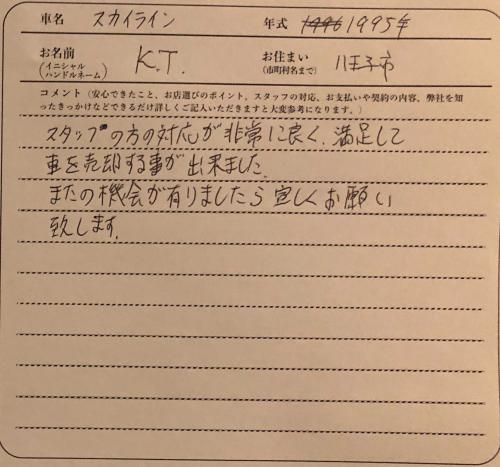 車名 スカイライン 年式 1996 1995年
お名前 (イニシャル ハンドルネーム) K.T. お住まい (市町村名まで) 八王子市
コメント(安心できたこと、お店選びのポイント、スタッフの対応、お支払いや契約の内容、弊社を知
ったきっかけなどできるだけ詳しくご記入いただきますと大変参考になります。)
スタッフの方の対応が非常に良く、満足して
車を売却する事が出来ました。
またの機会が有りましたら宜しくお願い
致します。